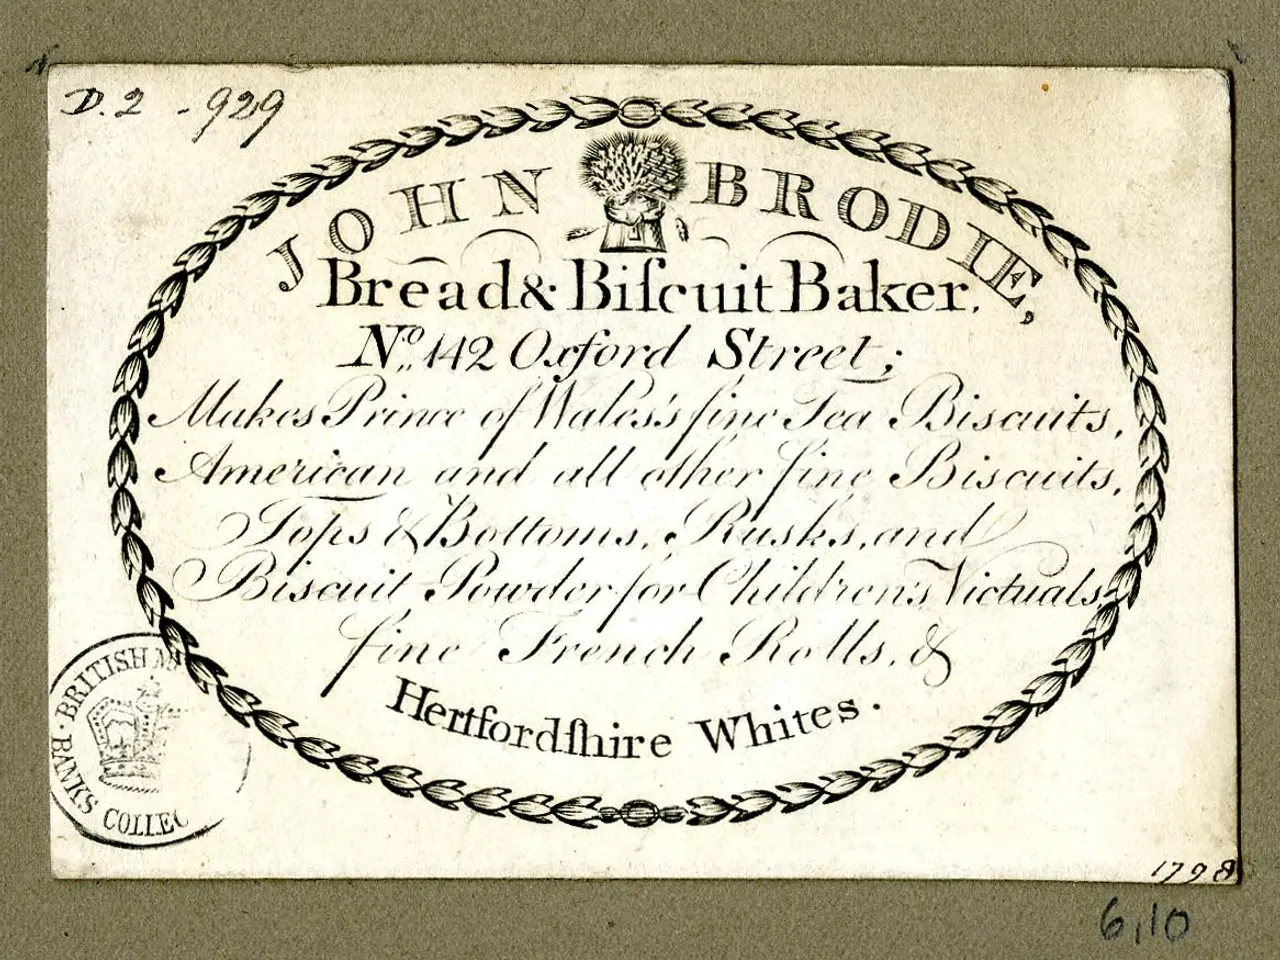 D.2 - 929
JOHN BRODIE,
Bread & Biſcuit Baker.
No. 142 Oxford Street;
Makes Prince of Wales's fine Tea Biscuits,
American and all other fine Biscuits,
Tops & Bottoms, Rusks, and
Biscuit Powder for Children's Victuals
fine French Rolls, &
Hertfordſhire Whites.
BRITISH M
BANKS COLLEC
1798
6,10